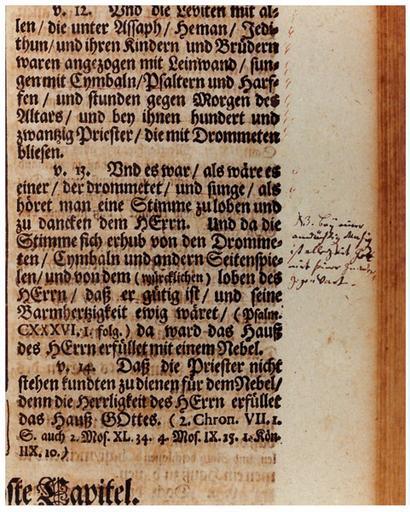 v. 12. Und die Leviten mit al-
len / die unter Assaph / Heman / Jedi-
thun / und ihren Kindern und Brüdern
waren angezogen mit Leinwand / sun-
gen mit Cymbaln / Psaltern und Harf-
fen / und stunden gegen Morgen des
Altars / und bey ihnen hundert und
zwantzig Priester / die mit Drommeten
bliesen.
v. 13. Und es war / als wäre es
einer / der drommetet / und sünge / als
höret man eine Stimme zu loben und
zu dancken dem HErrn. Und da die
Stimme sich erhub von den Dromme-
ten / Cymbaln und andern Seitenspie-
len / und von dem (würcklichen) loben des
HErrn / daß er gütig ist / und seine
Barmhertzigkeit ewig wäret / (Psalm.
CXXXVI. 1. folg.) da ward das Hauß
des HErrn erfüllet mit einem Nebel.
v. 14. Daß die Priester nicht
stehen kundten zu dienen für dem Nebel /
denn die Herrligkeit des HErrn erfüllet
das Hauß GOttes. (2. Chron. VII. 1.
S. auch 2. Mos. XL. 34. 4. Mos. IX. 15. 1. Kön.
IIX, 10.)
ste Capitel.
NB. Bey einer
andächtig Musiq
ist allezeit Gott
mit seiner Gnaden
Gegenwart.